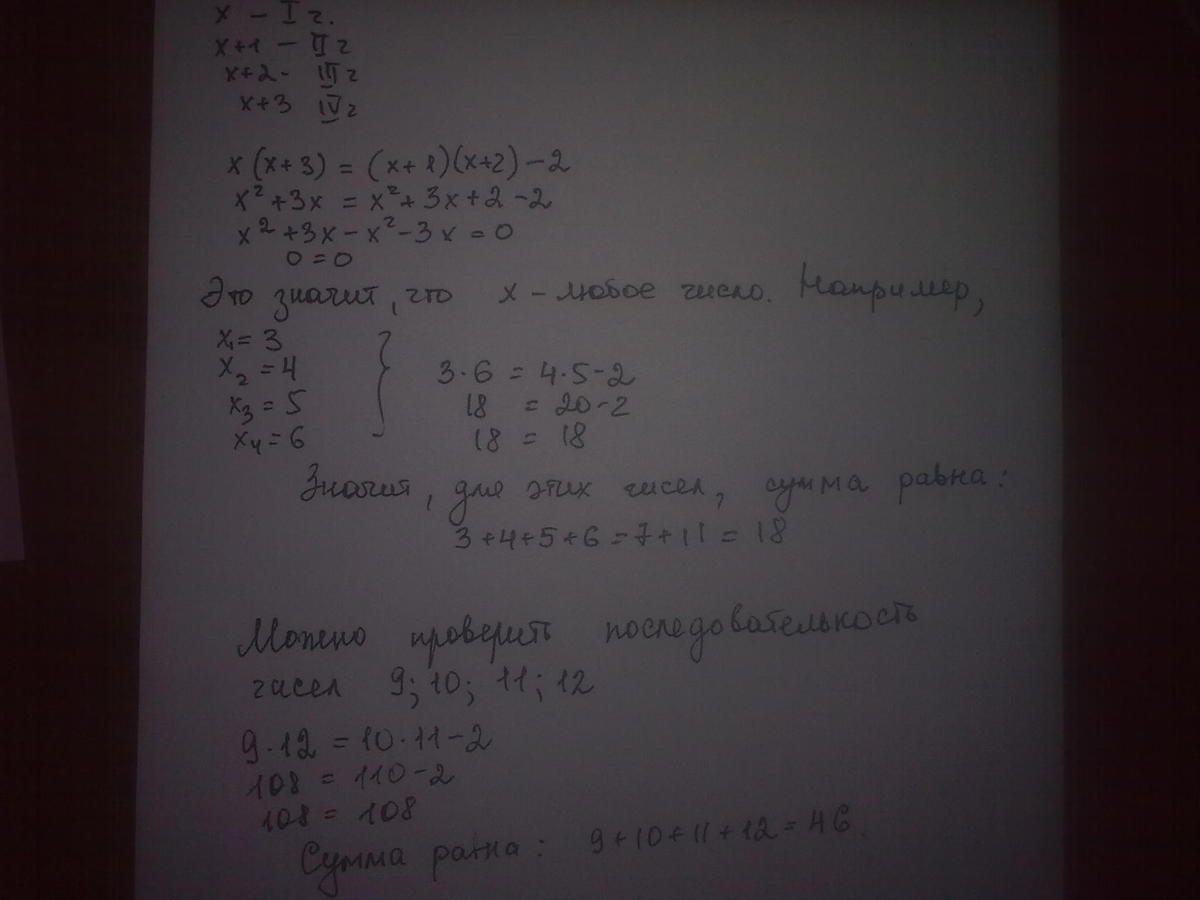 x – I ч.
x+1 – II ч
x+2 - III ч
x+3 IV ч
x(x+3) = (x+1)(x+2) – 2
x² + 3x = x² + 3x + 2 - 2
x² + 3x – x² – 3x = 0
0 = 0
Это значит, что x – любое число. Например,
x₁ = 3
x₂ = 4 } 3·6 = 4·5-2
x₃ = 5 18 = 20-2
x₄ = 6 18 = 18
Значит, для этих чисел, сумма равна:
3+4+5+6=7+11 = 18
Можно проверить последовательность
чисел 9; 10; 11; 12
9·12 = 10·11-2
108 = 110-2
108 = 108
Сумма равна: 9+10+11+12=46.